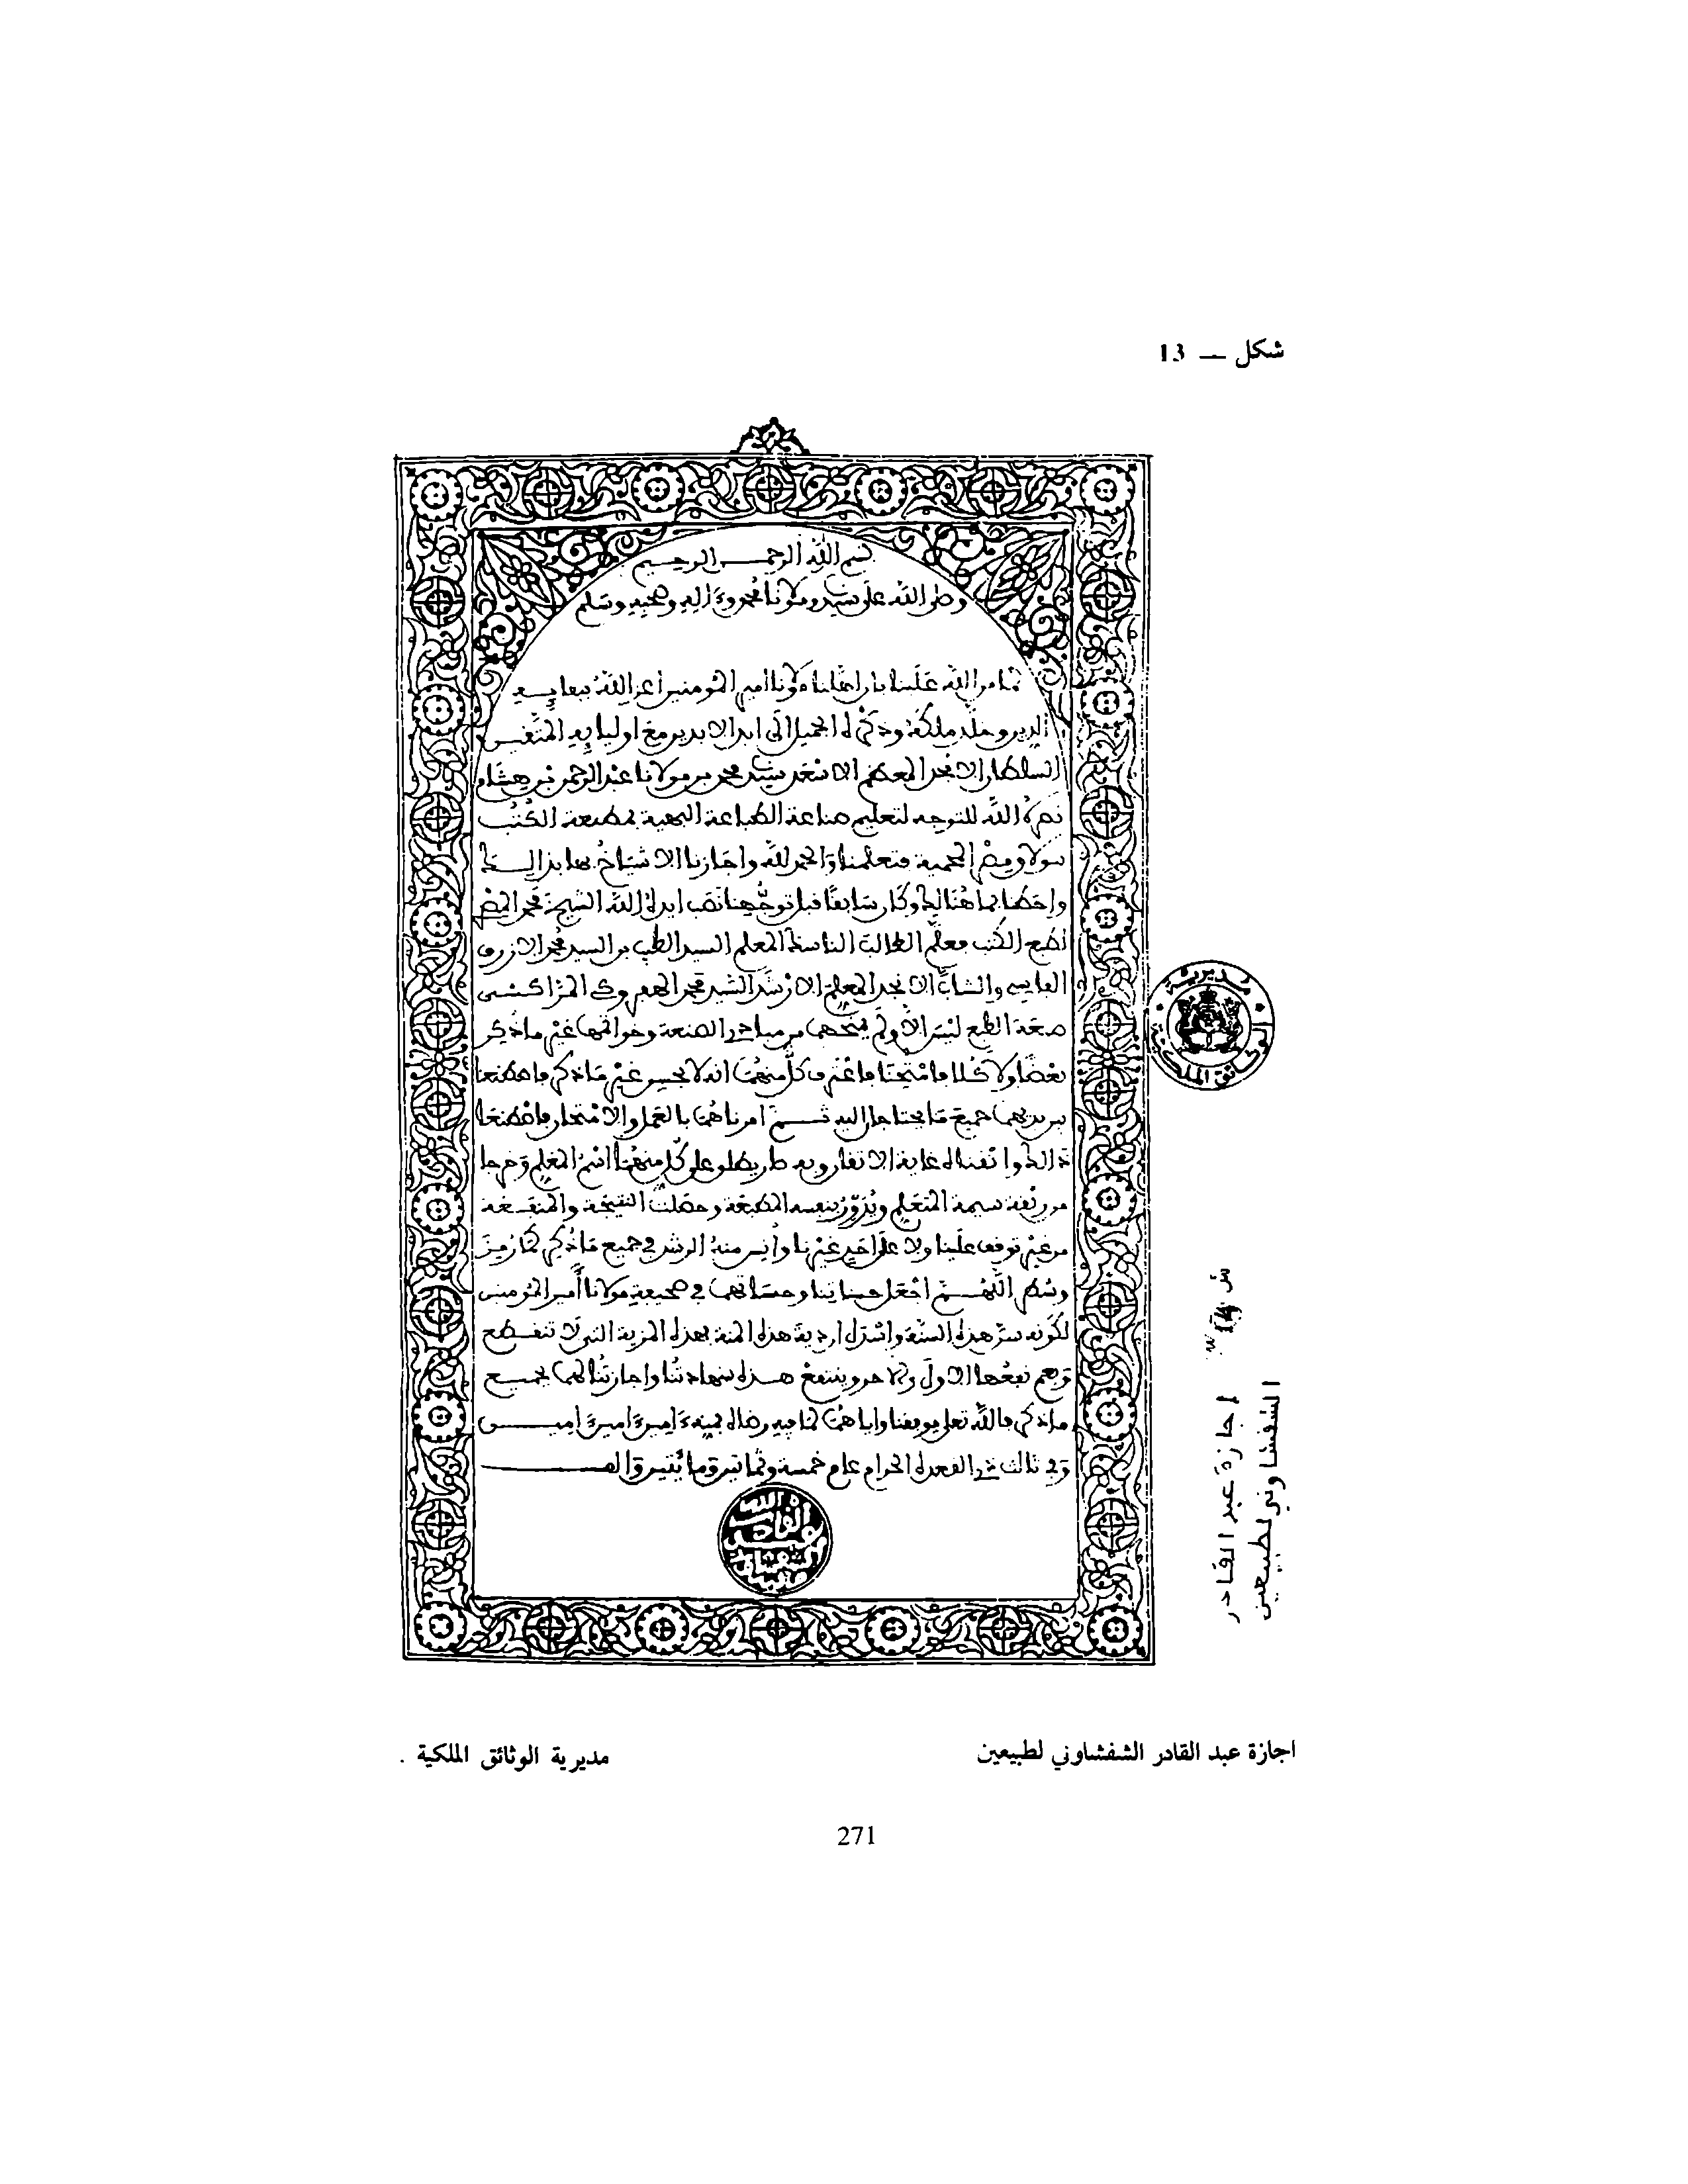 شكل — 13
بسم الله الرحمن الرحيم
وصلى الله على سيدنا ومولانا محمد وءاله وصحبه وسلم
لما من الله علينا بان اهلنا مولانا امير المومنين اعز الله ببقايه
الدين وخلد ملكه وذكره الجميل الى ابد الابدين مع اوليايه المتقين
السلطان الافخم المعظم الاسعد سيدي محمد بن مولانا عبد الرحمن بن هشام
نصره الله للتوجه لتعليم صناعة الطباعة البهية بمطبعة الكتب
بولاق مصر المحمية فتعلمنا والحمد لله واجازنا الاشياخ بها بذالك
واحطنا بما هنالك وكان سابقا قبل توجهنا نصب ايده الله الشيخ محمد المصري
لطبع الكتب فعلم الطالب الناسك المعلم السيد الطيب بن السيد محمد الازرق
الفاسي والشاب الانجد المعلم الارشد السيد محمد الهفروكي المراكشي
صنعة الطبع ليس الا ولم يمكنهما من مباخر الصنعة وخواتمها غير ما ذكر
بعضا ولا كلا فامتحنا فاعترف كل منهما انه لا يحسن غير ما ذكر فاصطنعنا
بين يديهما جميع ما يحتاجان اليه ثم امرناهما بالعمل والامتحان فاصطنعا
ذالك واتقناه غاية الاتقان وبه صار يطلق على كل منهما اسم المعلم وخرجا
من ربقة سيمة المتعلم وتزور بنفسه المطبعة وحصلت النتيجة والمنفعة
من غير توقف علينا ولا على احد غيرنا وانس منه الرشد في جميع ما ذكر كما رمز
وسطر اللهم اجعل حسناتنا وحسناتهما في صحيفة مولانا أمير المومنين
لكونه سن هذه السنة واشترى اردية هذه المنة بهذه المزية التي لا تنقطع
وبعم نفعها الاول والاخر وينتفع هذه شهادتنا واجازتنا لهما بجميع
ما ذكر والله تعلى يوفقنا واياهما لما فيه رضاه بمنه ءامين ءامين ءامين
وفي ثالث ذي القعدة الحرام عام خمسة وثمانين ومائتين والف
عبد القادر الشفشاوني
مديرية الوثائق الملكية
اجازة عبد القادر
الشفشاوني لطبيعين
اجازة عبد القادر الشفشاوني لطبيعين
مديرية الوثائق الملكية .
271